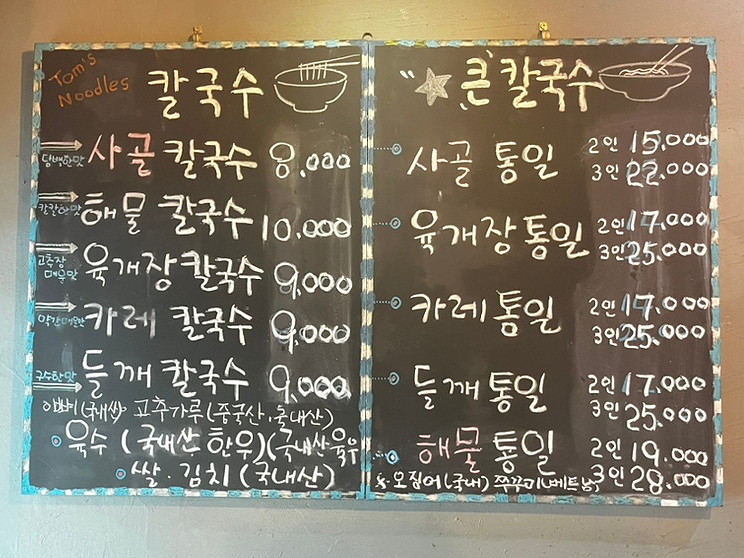 Tom's
Noodles
칼국수
담백한맛 사골 칼국수 8,000
칼칼한맛 해물 칼국수 10,000
고추장
매운맛 육개장 칼국수 9,000
약간매운맛 카레 칼국수 9,000
구수한맛 들깨 칼국수 9,000
고추가루(중국산·국내산)
육수(국내산 한우)(국내산육우
쌀·김치(국내산)
"☆큰"칼국수
사골 통일 2인 15,000
3인 22,000
육개장통일 2인 17,000
3인 25,000
카레통일 2인 17,000
3인 25,000
들깨통일 2인 17,000
3인 25,000
해물통일 2인 19,000
3인 28,000
오징어(국내) 쭈꾸미(베트남)